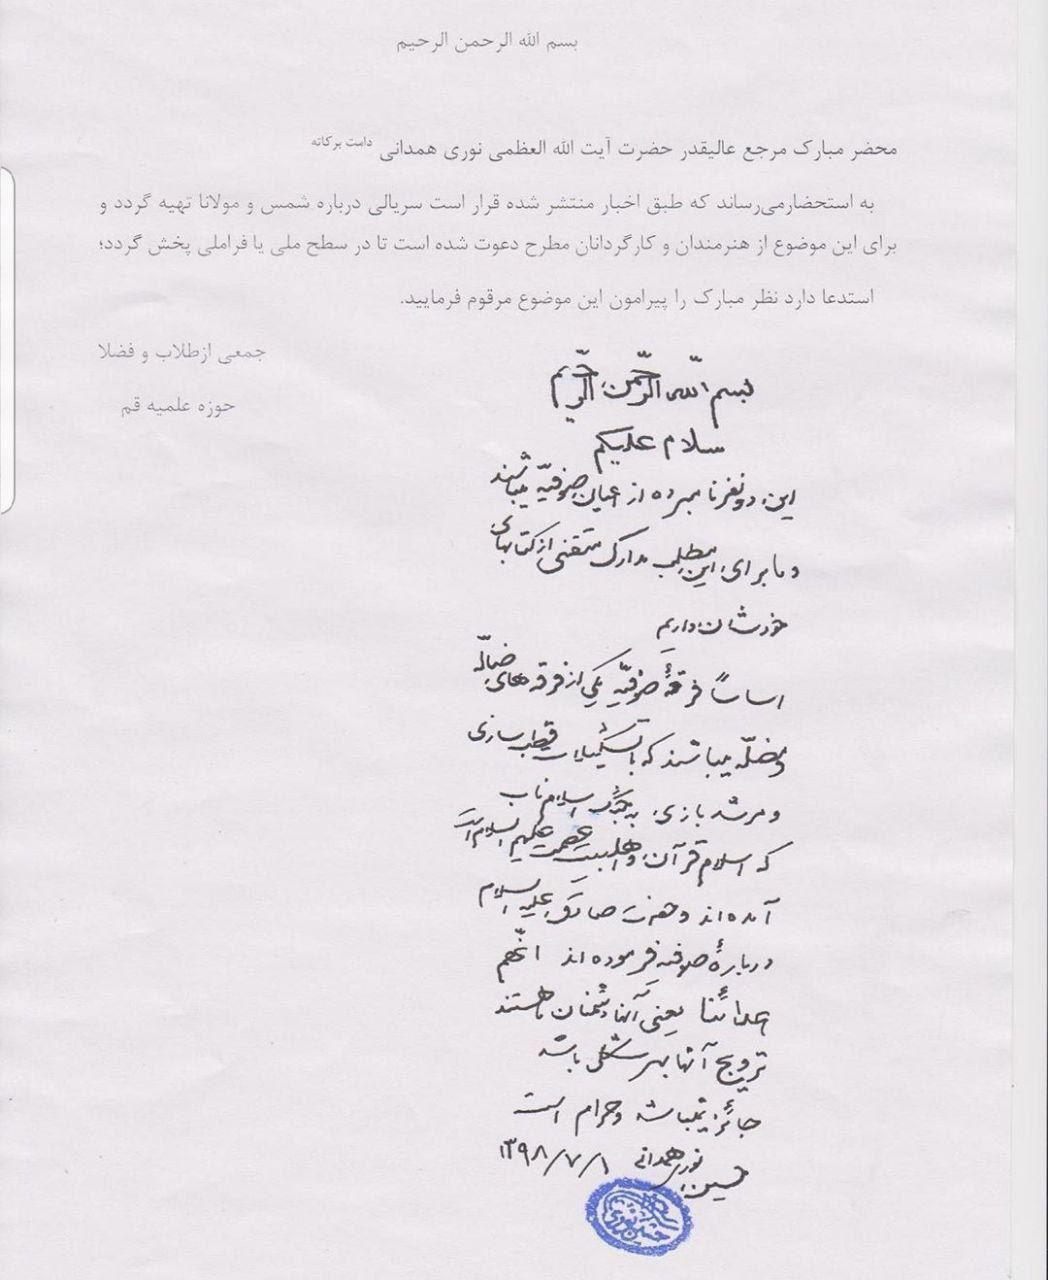 بسم الله الرحمن الرحیم
محضر مبارک مرجع عالیقدر حضرت آیت الله العظمی نوری همدانی دامت برکاته
به استحضارمی‌رساند که طبق اخبار منتشر شده قرار است سریالی درباره شمس و مولانا تهیه گردد و
برای این موضوع از هنرمندان و کارگردانان مطرح دعوت شده است تا در سطح ملی یا فراملی پخش گردد؛
استدعا دارد نظر مبارک را پیرامون این موضوع مرقوم فرمایید.
جمعی ازطلاب و فضلا
حوزه علمیه قم
بسم اللّه الرّحمن الرّحیم
سلام علیکم
این دو نفر نامبرده از اعیان صوفیّه میباشند
و ما برای این مطلب مدارک متقنی از کتابهای
خودشان داریم
اساساً فرقهٔ صوفیّه یکی از فرقه های ضالّه
و مضلّه میباشند که با تشکیلات قطب سازی
و مرشد بازی به جنگ اسلام ناب
که اسلام قرآن و اهلبیت عصمت علیهم السلام است
آمده اند و حضرت صادق علیه السلام
دربارهٔ صوفیه فرموده اند انّهم
اعدائنا یعنی آنها دشمنان ما هستند
ترویج آنها بهر شکلی باشد
جائز نمیباشد و حرام است
حسین نوری همدانی ۱۳۹۸/۷/۱